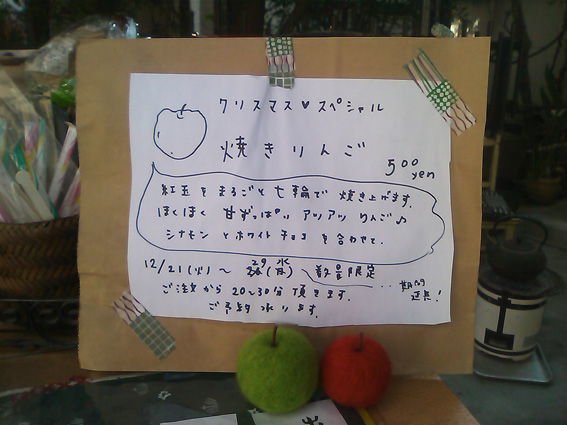 クリスマス♥スペシャル
焼きりんご
500
yen
紅玉をまるごと七輪で 焼き上げます。
ほくほく 甘ずっぱい アツアツ りんご♪
シナモン と ホワイト チョコ を合わせて。
12/21(火)〜 29(水) 数量限定
... 期間
延長!
ご注文から 20〜30分 頂きます。
ご予約 承ります。